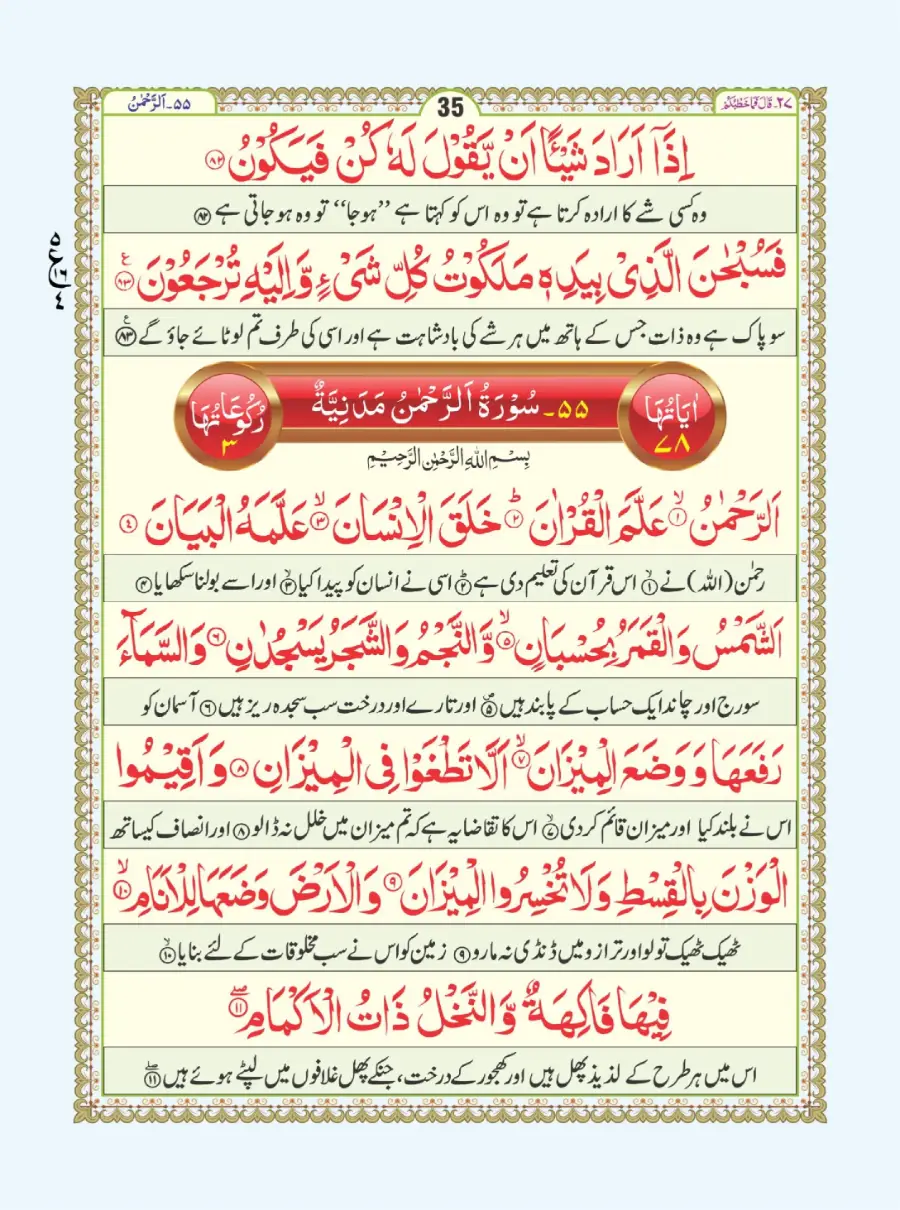 ۲۷۔ قَالَ فَمَا خَطْبُكُمْ
35
۵۵۔ اَلرَّحْمٰنُ
اِذَاۤ اَرَادَ شَیْـًٔا اَنْ یَّقُوْلَ لَهٗ كُنْ فَیَكُوْنُ ﴿۸۲﴾
وہ کسی شے کا ارادہ کرتا ہے تو وہ اس کو کہتا ہے ’’ہوجا‘‘ تو وہ ہو جاتی ہے ﴿۸۲﴾
فَسُبْحٰنَ الَّذِیْ بِیَدِهٖ مَلَكُوْتُ كُلِّ شَیْءٍ وَّ اِلَیْهِ تُرْجَعُوْنَ ﴿۸۳﴾ ع
سو پاک ہے وہ ذات جس کے ہاتھ میں ہر شے کی بادشاہت ہے اور اسی کی طرف تم لوٹائے جاؤ گے ﴿۸۳﴾ ع
اٰیَاتُهَا ۷۸
۵۵۔ سُوْرَةُ اَلرَّحْمٰنُ مَدَنِیَّةٌ
رُكُوْعَاتُهَا ۳
بِسْمِ اللّٰهِ الرَّحْمٰنِ الرَّحِیْمِ
اَلرَّحْمٰنُ ﴿۱﴾ۙ عَلَّمَ الْقُرْاٰنَ ﴿۲﴾ؕ خَلَقَ الْاِنْسَانَ ﴿۳﴾ۙ عَلَّمَهُ الْبَیَانَ ﴿۴﴾
رحمٰن (اللہ) نے ﴿۱﴾ۙ اس قرآن کی تعلیم دی ہے ﴿۲﴾ؕ اسی نے انسان کو پیدا کیا ﴿۳﴾ۙ اور اسے بولنا سکھایا ﴿۴﴾
اَلشَّمْسُ وَالْقَمَرُ بِحُسْبَانٍ ﴿۵﴾ۙ وَّ النَّجْمُ وَالشَّجَرُ یَسْجُدٰنِ ﴿۶﴾ وَالسَّمَآءَ
سورج اور چاند ایک حساب کے پابند ہیں ﴿۵﴾ۖ اور تارے اور درخت سب سجدہ ریز ہیں ﴿۶﴾ آسمان کو
رَفَعَهَا وَ وَضَعَ الْمِیْزَانَ ﴿۷﴾ۙ اَلَّا تَطْغَوْا فِی الْمِیْزَانِ ﴿۸﴾ وَ اَقِیْمُوا
اس نے بلند کیا اور میزان قائم کر دی ﴿۷﴾ۙ اس کا تقاضا یہ ہے کہ تم میزان میں خلل نہ ڈالو ﴿۸﴾ اور انصاف کیساتھ
الْوَزْنَ بِالْقِسْطِ وَ لَا تُخْسِرُوا الْمِیْزَانَ ﴿۹﴾ وَ الْاَرْضَ وَضَعَهَا لِلْاَنَامِ ﴿۱۰﴾ۙ
ٹھیک ٹھیک تولو اور ترازو میں ڈنڈی نہ مارو ﴿۹﴾ زمین کو اس نے سب مخلوقات کے لئے بنایا ﴿۱۰﴾ۙ
فِیْهَا فَاكِهَةٌ وَّ النَّخْلُ ذَاتُ الْاَكْمَامِ ﴿۱۱﴾ۖ
اس میں ہر طرح کے لذیذ پھل ہیں اور کھجور کے درخت، جنکے پھل غلافوں میں لپٹے ہوئے ہیں ﴿۱۱﴾ۖ